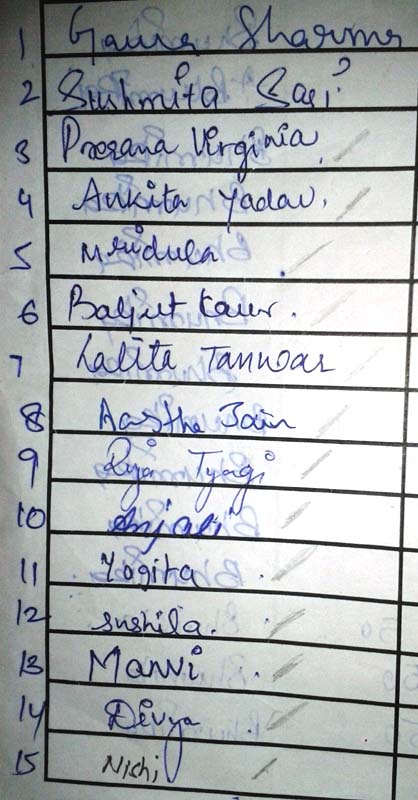 1 Gaura Sharma
2 Sushmita Sari
3 Prerana Virginia
4 Ankita Yadav.
5 Mridula
6 Baljut Kaur.
7 Lalita Tanwar
8 Aastha Jain
9 Riya Tyagi
10 Anjali
11 Yogita
12 Sushila.
13 Manvi
14 Divya
15 Nishi